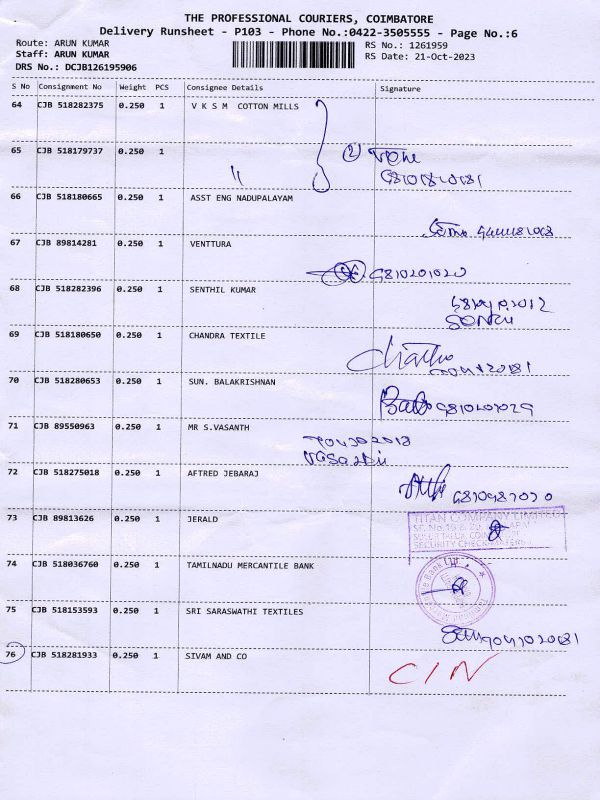 THE PROFESSIONAL COURIERS, COIMBATORE
Delivery Runsheet - P103 - Phone No.:0422-3505555 - Page No.:6
Route: ARUN KUMAR RS No.: 1261959
Staff: ARUN KUMAR RS Date: 21-Oct-2023
DRS No.: DCJB126195906
S No Consignment No Weight PCS Consignee Details Signature
64 CJB 518282375 0.250 1 V K S M COTTON MILLS
65 CJB 518179737 0.250 1 "
66 CJB 518180665 0.250 1 ASST ENG NADUPALAYAM
67 CJB 89814281 0.250 1 VENTTURA
68 CJB 518282396 0.250 1 SENTHIL KUMAR
69 CJB 518180650 0.250 1 CHANDRA TEXTILE
70 CJB 518280653 0.250 1 SUN. BALAKRISHNAN
71 CJB 89550963 0.250 1 MR S.VASANTH
72 CJB 518275018 0.250 1 AFTRED JEBARAJ
73 CJB 89813626 0.250 1 JERALD
TITAN COMPANY LIMITED
74 CJB 518036760 0.250 1 TAMILNADU MERCANTILE BANK
75 CJB 518153593 0.250 1 SRI SARASWATHI TEXTILES
76 CJB 518281933 0.250 1 SIVAM AND CO C/N